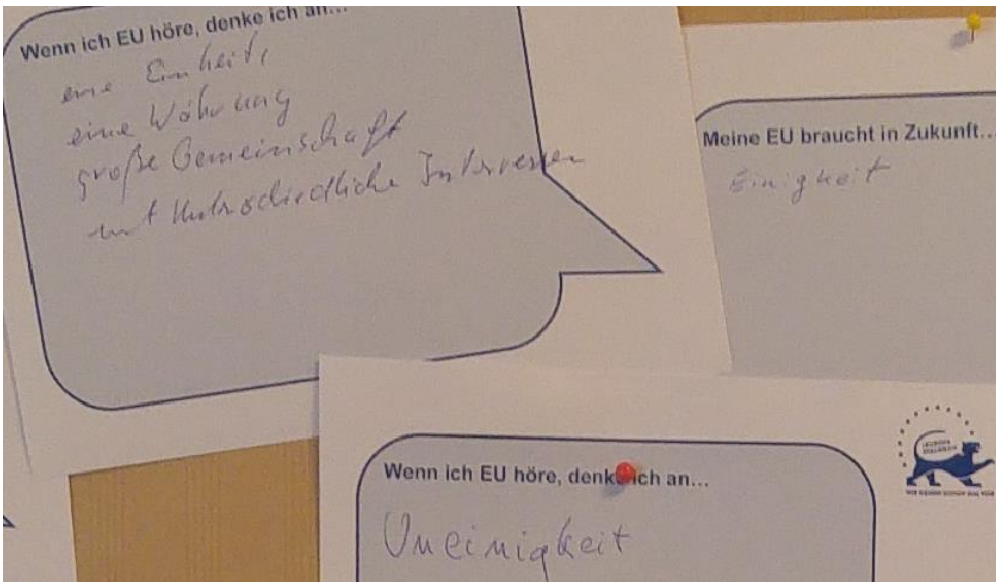 Wenn ich EU höre, denke ich an...
eine Einheit,
eine Währung
große Gemeinschaft
mit Unterschiedliche Interessen
Meine EU braucht in Zukunft...
Einigkeit
Wenn ich EU höre, denke ich an...
Uneinigkeit